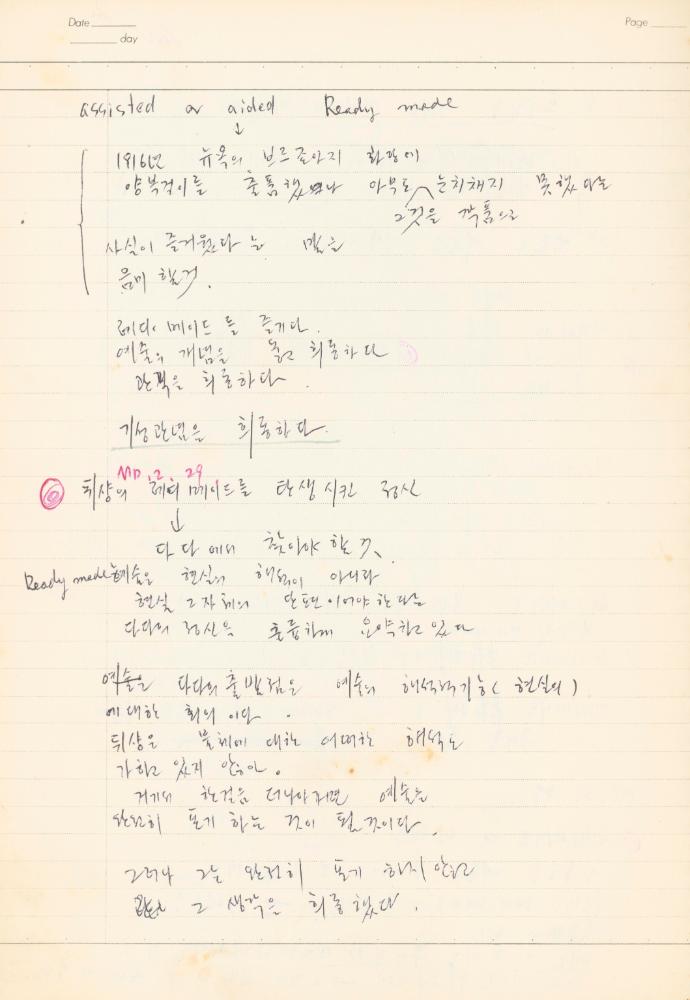 Date
day
Page
assisted or aided Ready made
↓
1916년 뉴욕의 브르죠아지 화랑에
양복걸이를 출품했으나 아무도 눈치채지 못했다는
그것을 작품으로
사실이 즐거웠다 는 말을
음미 할것.
레디 메이드 를 즐기다.
예술의 개념을 놓고 희롱하다
관객을 희롱하다.
기성관념을 희롱하다.
MD, 2, 29
뒤샹의 레디 메이드를 탄생시킨 정신
↓
다다에서 찾아야 할 것.
Ready made 예술은 현실의 해석이 아니라
현실 그 자체의 단편이어야 한다는
다다의 정신을 훌륭하게 요약하고 있다
예술은 다다의 출발점은 예술의 해석적 기능 (현실의)
에 대한 회의 이다.
뒤샹은 물체에 대한 어떠한 해석도
가하고 있지 않아.
거기서 한걸음 더 나아가면 예술을
완전히 포기 하는 것이 될 것이다.
그러나 그는 완전히 포기 하지 않고
그 생각을 희롱했다.